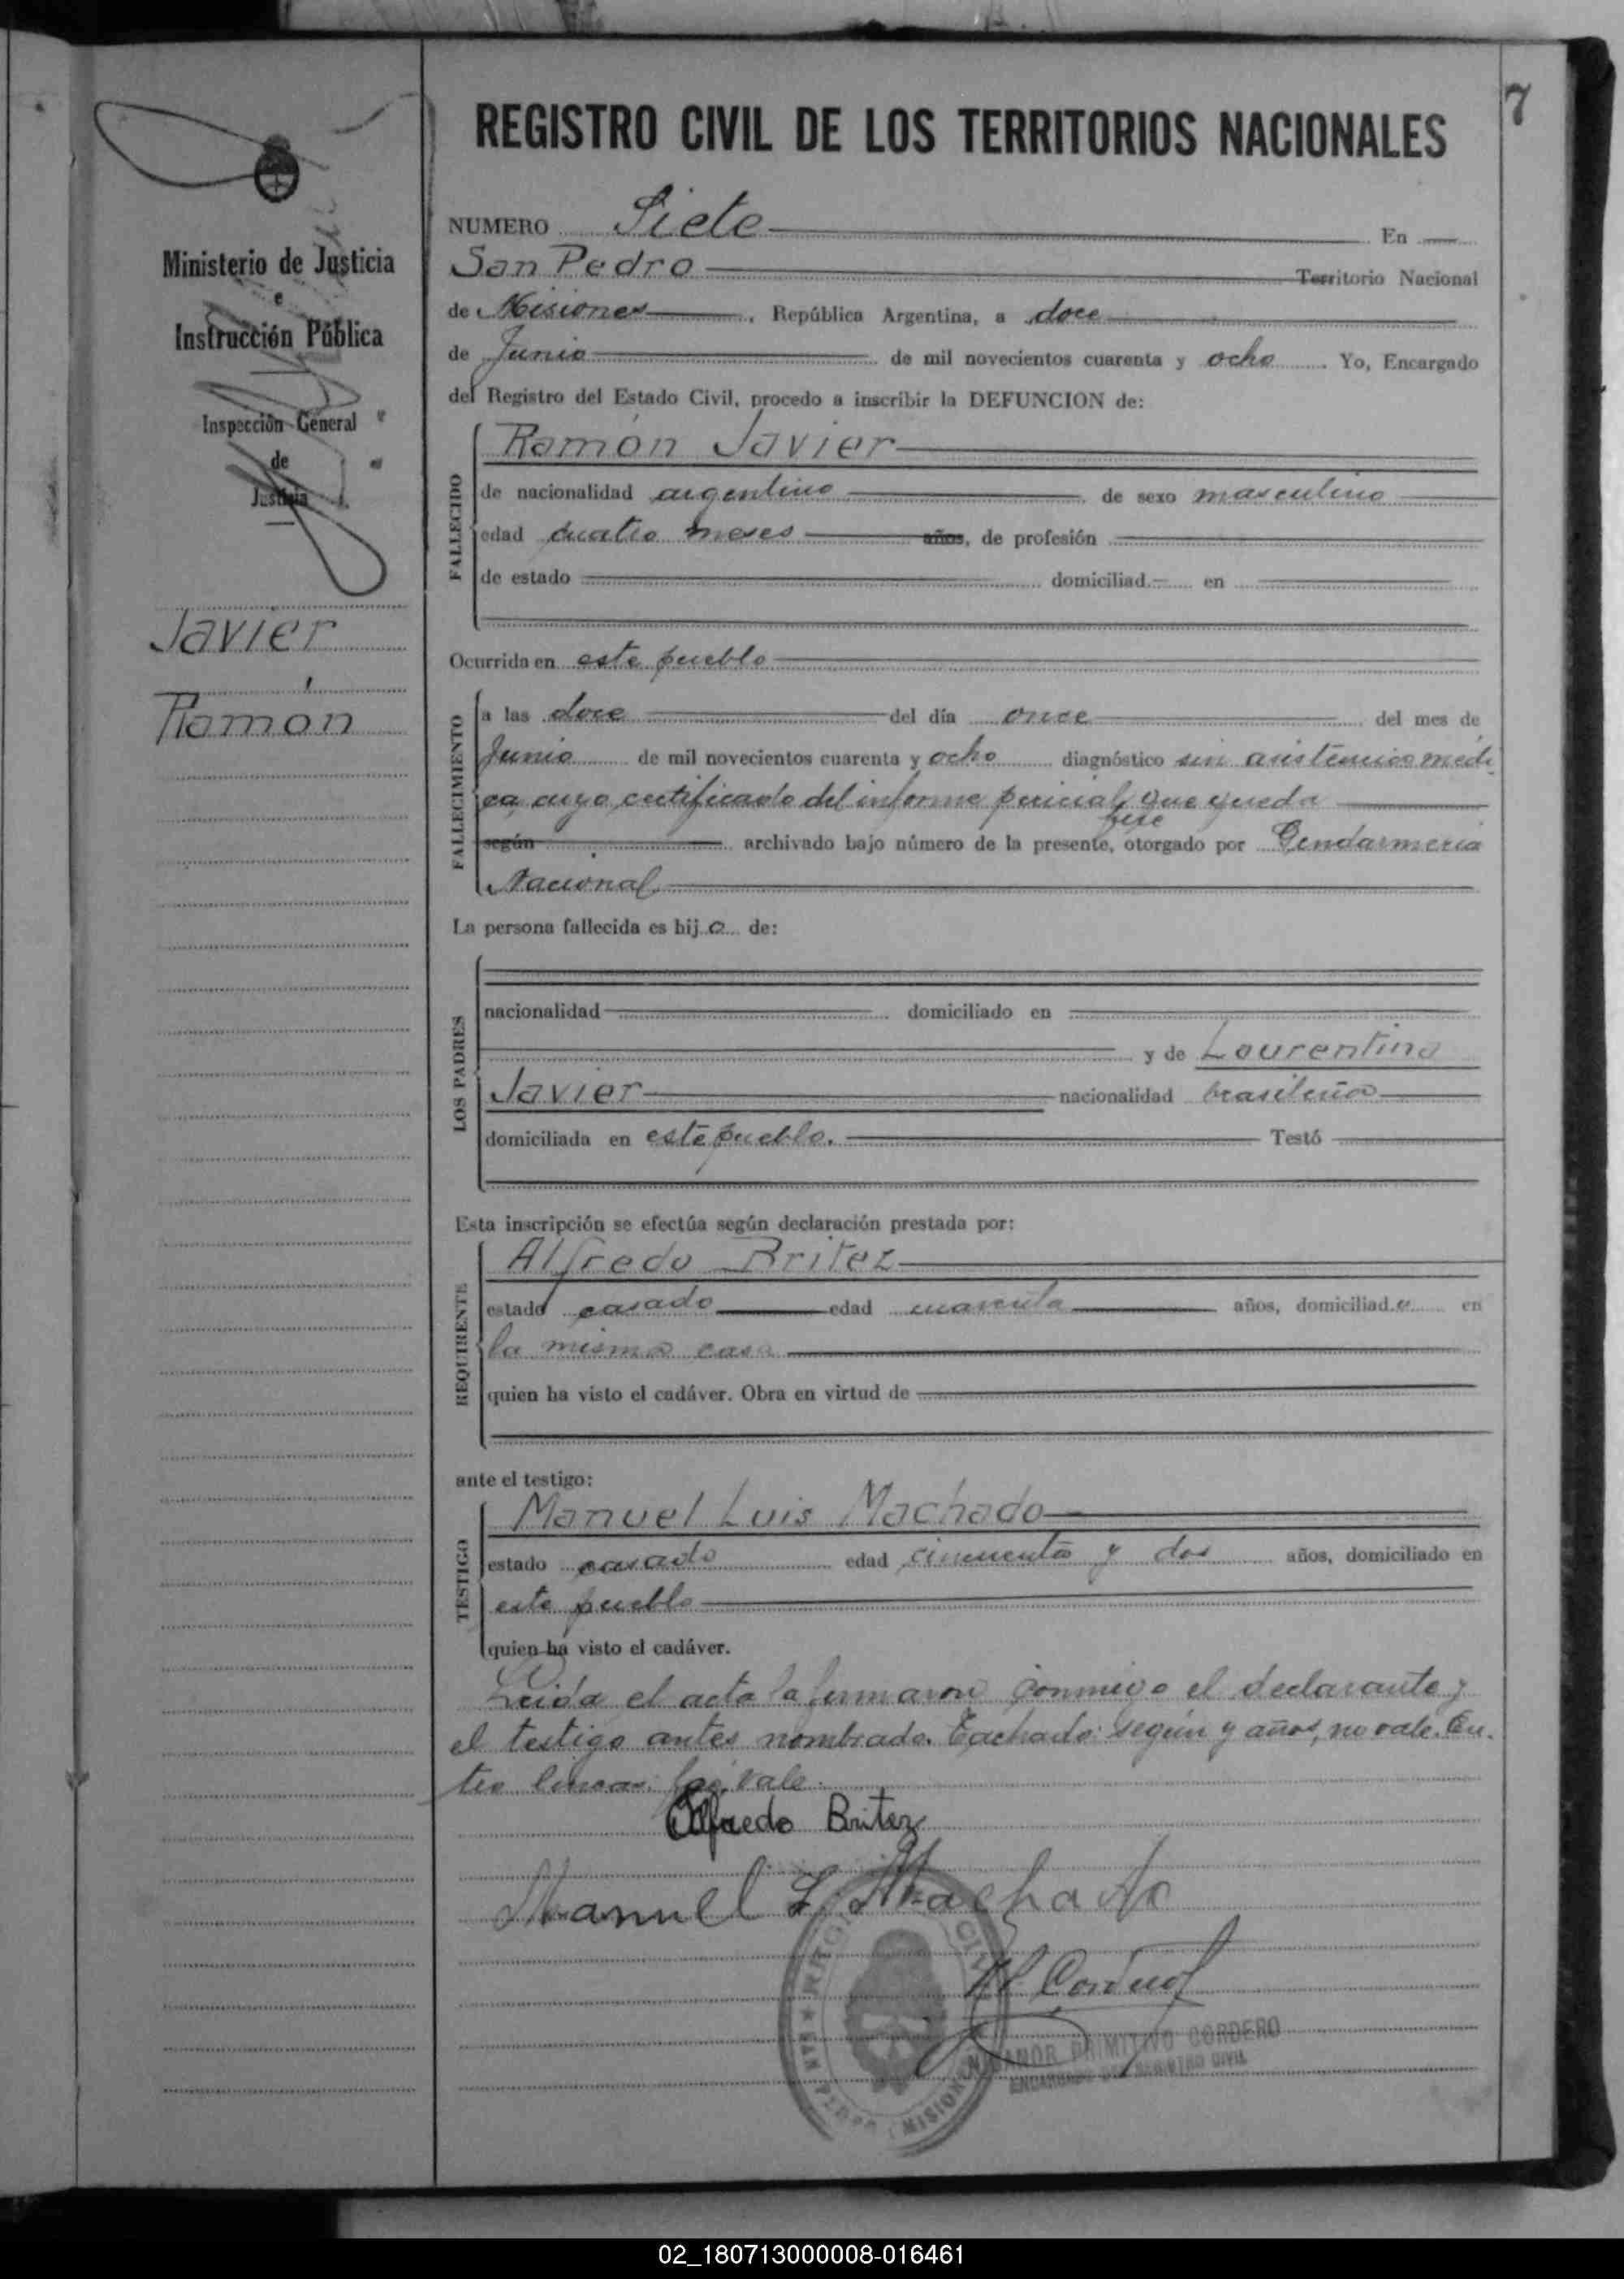 7
REGISTRO CIVIL DE LOS TERRITORIOS NACIONALES
Ministerio de Justicia
e
Instrucción Pública
Inspección General
de
Justicia
Javier
Ramón
NUMERO Siete En
San Pedro Territorio Nacional
de Misiones, República Argentina, a doce
de Junio de mil novecientos cuarenta y ocho Yo, Encargado
del Registro del Estado Civil, procedo a inscribir la DEFUNCION de:
FALLECIDO
Ramón Javier
de nacionalidad argentino de sexo masculino
edad cuatro meses años, de profesión
de estado domiciliad en
Ocurrida en este pueblo
FALLECIMIENTO
a las doce del día once del mes de
Junio de mil novecientos cuarenta y ocho diagnóstico sin asistencia medi
ca, cuyo certificado del informe pericial, que queda
fué
según archivado bajo número de la presente, otorgado por Gendarmeria
Nacional
La persona fallecida es hijo de:
LOS PADRES
nacionalidad domiciliado en
y de Laurentina
Javier nacionalidad brasileña
domiciliada en este pueblo. Testó
Esta inscripción se efectúa según declaración prestada por:
REQUIRENTE
Alfredo Britez
estado casado edad cuarenta años, domiciliado en
la misma casa
quien ha visto el cadáver. Obra en virtud de
ante el testigo:
TESTIGO
Manuel Luis Machado
estado casado edad cincuenta y dos años, domiciliado en
este pueblo
quien ha visto el cadáver.
Leida el acta la firmaron conmigo el declarante y
el testigo antes nombrado. Tachado: según y años, no vale. En-
tre lineas: fué. Vale.
Alfredo Britez
Manuel L. Machado
N. P. Cordero
NICANOR PRIMITIVO CORDERO
ENCARGADO DEL REGISTRO CIVIL
SAN PEDRO MISIONES
02_180713000008-016461